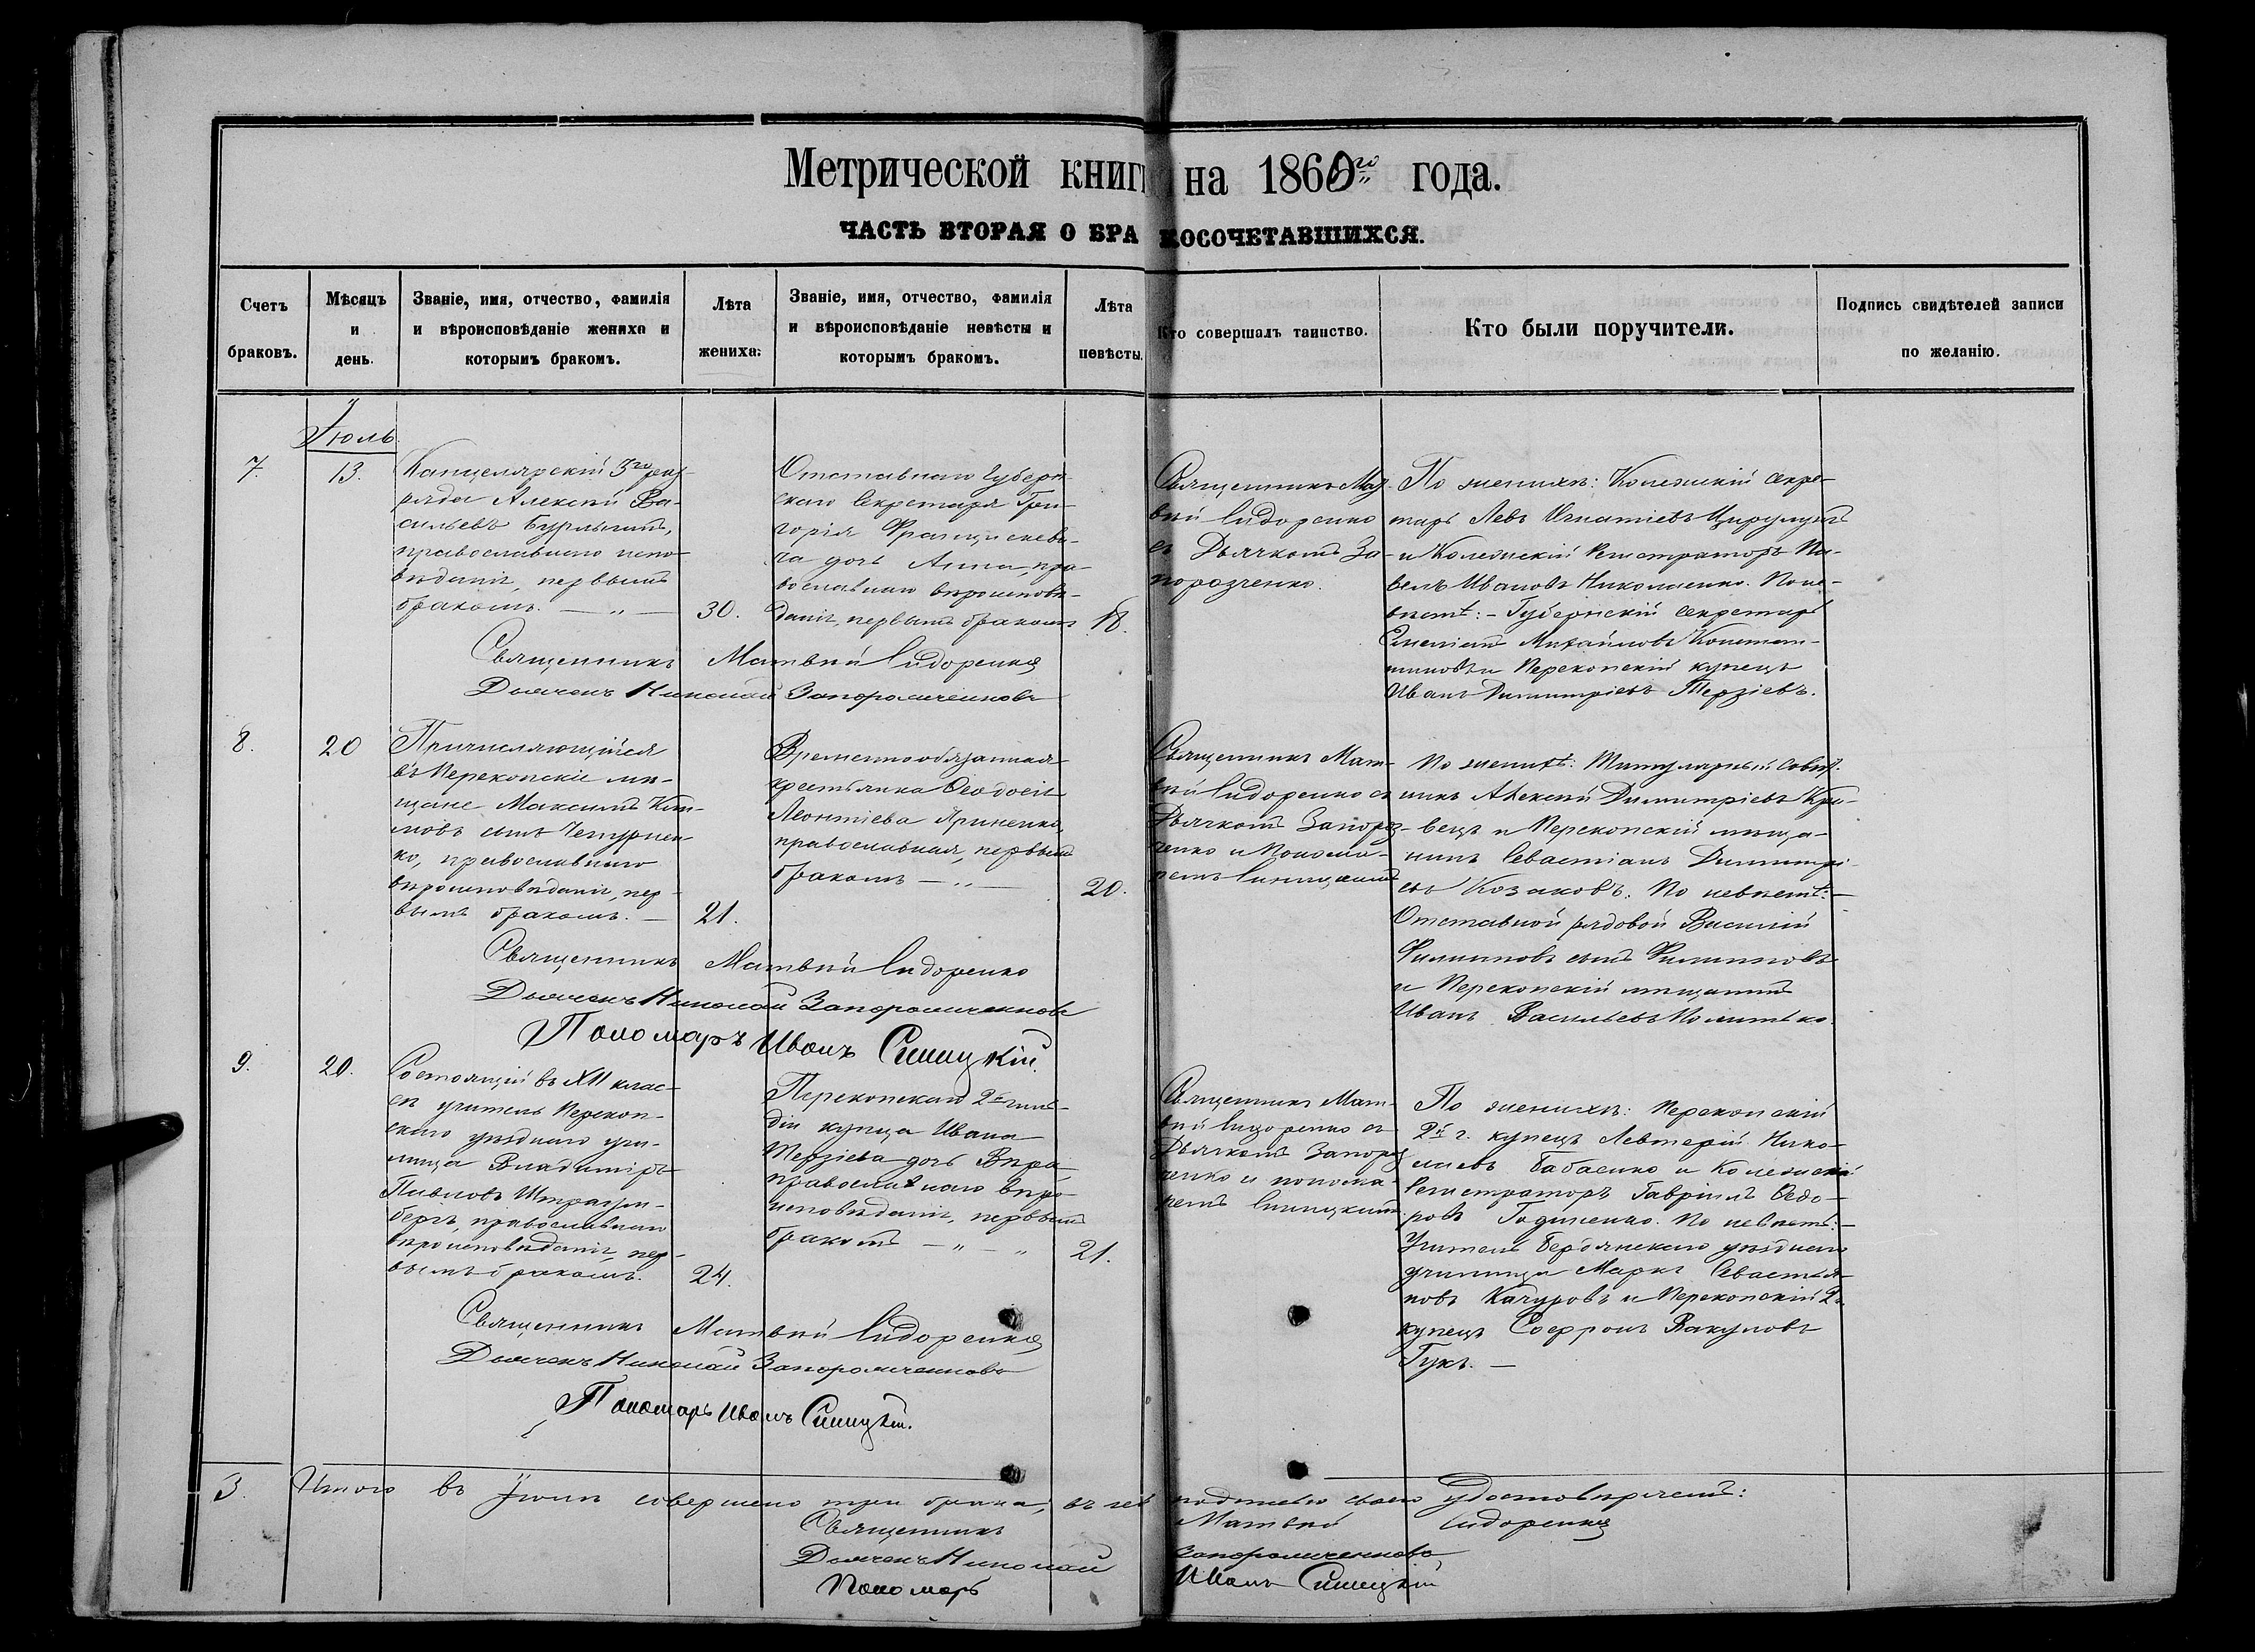 Метрической книги на 1860го года.
ЧАСТЬ ВТОРАЯ О БРАКОСОЧЕТАВШИХСЯ.
Счетъ браковъ.
Мѣсяцъ и день.
Званіе, имя, отчество, фамилія
и вѣроисповѣданіе жениха и
которымъ бракомъ.
Лѣта
жениха.
Званіе, имя, отчество, фамилія
и вѣроисповѣданіе невѣсты и
которымъ бракомъ.
Лѣта
невѣсты.
Кто совершалъ таинство.
Кто были поручители.
Подпись свидѣтелей записи
по желанію.
Іюль.
7.
13.
Канцелярскій 3го раз-
ряда Алексѣй Ва-
сильевъ
православнаго испо-
вѣданія, первымъ
бракомъ. — „ —
30.
Отставнаго Губерн-
скаго Секретаря Гри-
горія Францискеви-
ча дочь Анна, пра-
вославнаго вѣроисповѣ-
данія, первымъ бракомъ
18.
Священникъ Мат-
вѣй Сидоренко
съ Дьячкомъ За-
порозченко.
По женихѣ: Колежскій Секре-
тарь Левъ Игнатіевъ
и Колежскій Регистраторъ Па-
велъ Ивановъ Николаенко. По не-
вѣстѣ: – Губернскій Секретарь
Михайловъ Констан-
тиновъ и Перекопскій купецъ
Иванъ Димитріевъ Терзіевъ.
Священникъ Матвѣй Сидоренко
Дьячекъ Николай Запорожченковъ
8.
20
Причисляющійся
въ Перекопскіе мѣ-
щане Максимъ
сынъ
ко, православнаго
вѣроисповѣданія, пер-
вымъ бракомъ. —
21.
Временнообязанная
крестьянка Ѳеодосія
Леонтіева
православная, первымъ
бракомъ — „ —
20.
Священникъ Мат-
вѣй Сидоренко съ
Дьячкомъ Запороз-
ченко и Понома-
ремъ Синицкимъ
По женихѣ: Титулярный Совѣт-
никъ Алексѣй Димитріевъ Кра-
вецъ и Перекопскій мѣща-
нинъ Севастіанъ Димитрі-
евъ Козаковъ. По невѣстѣ: —
Отставной рядовой Василій
Филиповъ сынъ Филиповъ
и Перекопскій мѣщанинъ
Иванъ Васильевъ
Священникъ Матвѣй Сидоренко
Дьячекъ Николай Запорожченковъ
Пономарь Иванъ Синицкій.
9.
20.
Состоящій въ XII клас-
сѣ учитель Перекоп-
скаго уѣзднаго учи-
лища Владиміръ
Павловъ
бергъ, православнаго
вѣроисповѣданія, пер-
вымъ бракомъ.
24.
Перекопскаго 2й гиль-
діи купца Ивана
Терзіева дочь Вѣра,
православнаго вѣро-
исповѣданія, первымъ
бракомъ — „ — „
21.
Священникъ Мат-
вѣй Сидоренко съ
Дьячкомъ Запороз-
ченко и понома-
ремъ Синицкимъ.
По женихѣ: Перекопскій
2й г. купецъ Левтерій Нико-
лаевъ Бабаенко и Колежскій
Регистраторъ Гавріилъ Ѳедо-
ровъ По невѣстѣ: —
Учитель Бердянскаго уѣзднаго
училища Маркъ Севастья-
новъ Качуровъ и Перекопскій 2й
купецъ Софронъ Вакуловъ
Гукъ. —
Священникъ Матвѣй Сидоренко
Дьячекъ Николай Запорожченковъ
Пономарь Иванъ Синицкій.
3. Итого въ Іюлѣ совершено три брака, въ чемъ подписью своею удостовѣряемъ:
Священникъ Матвѣй Сидоренко
Дьячекъ Николай Запорожченковъ
Пономарь Иванъ Синицкій